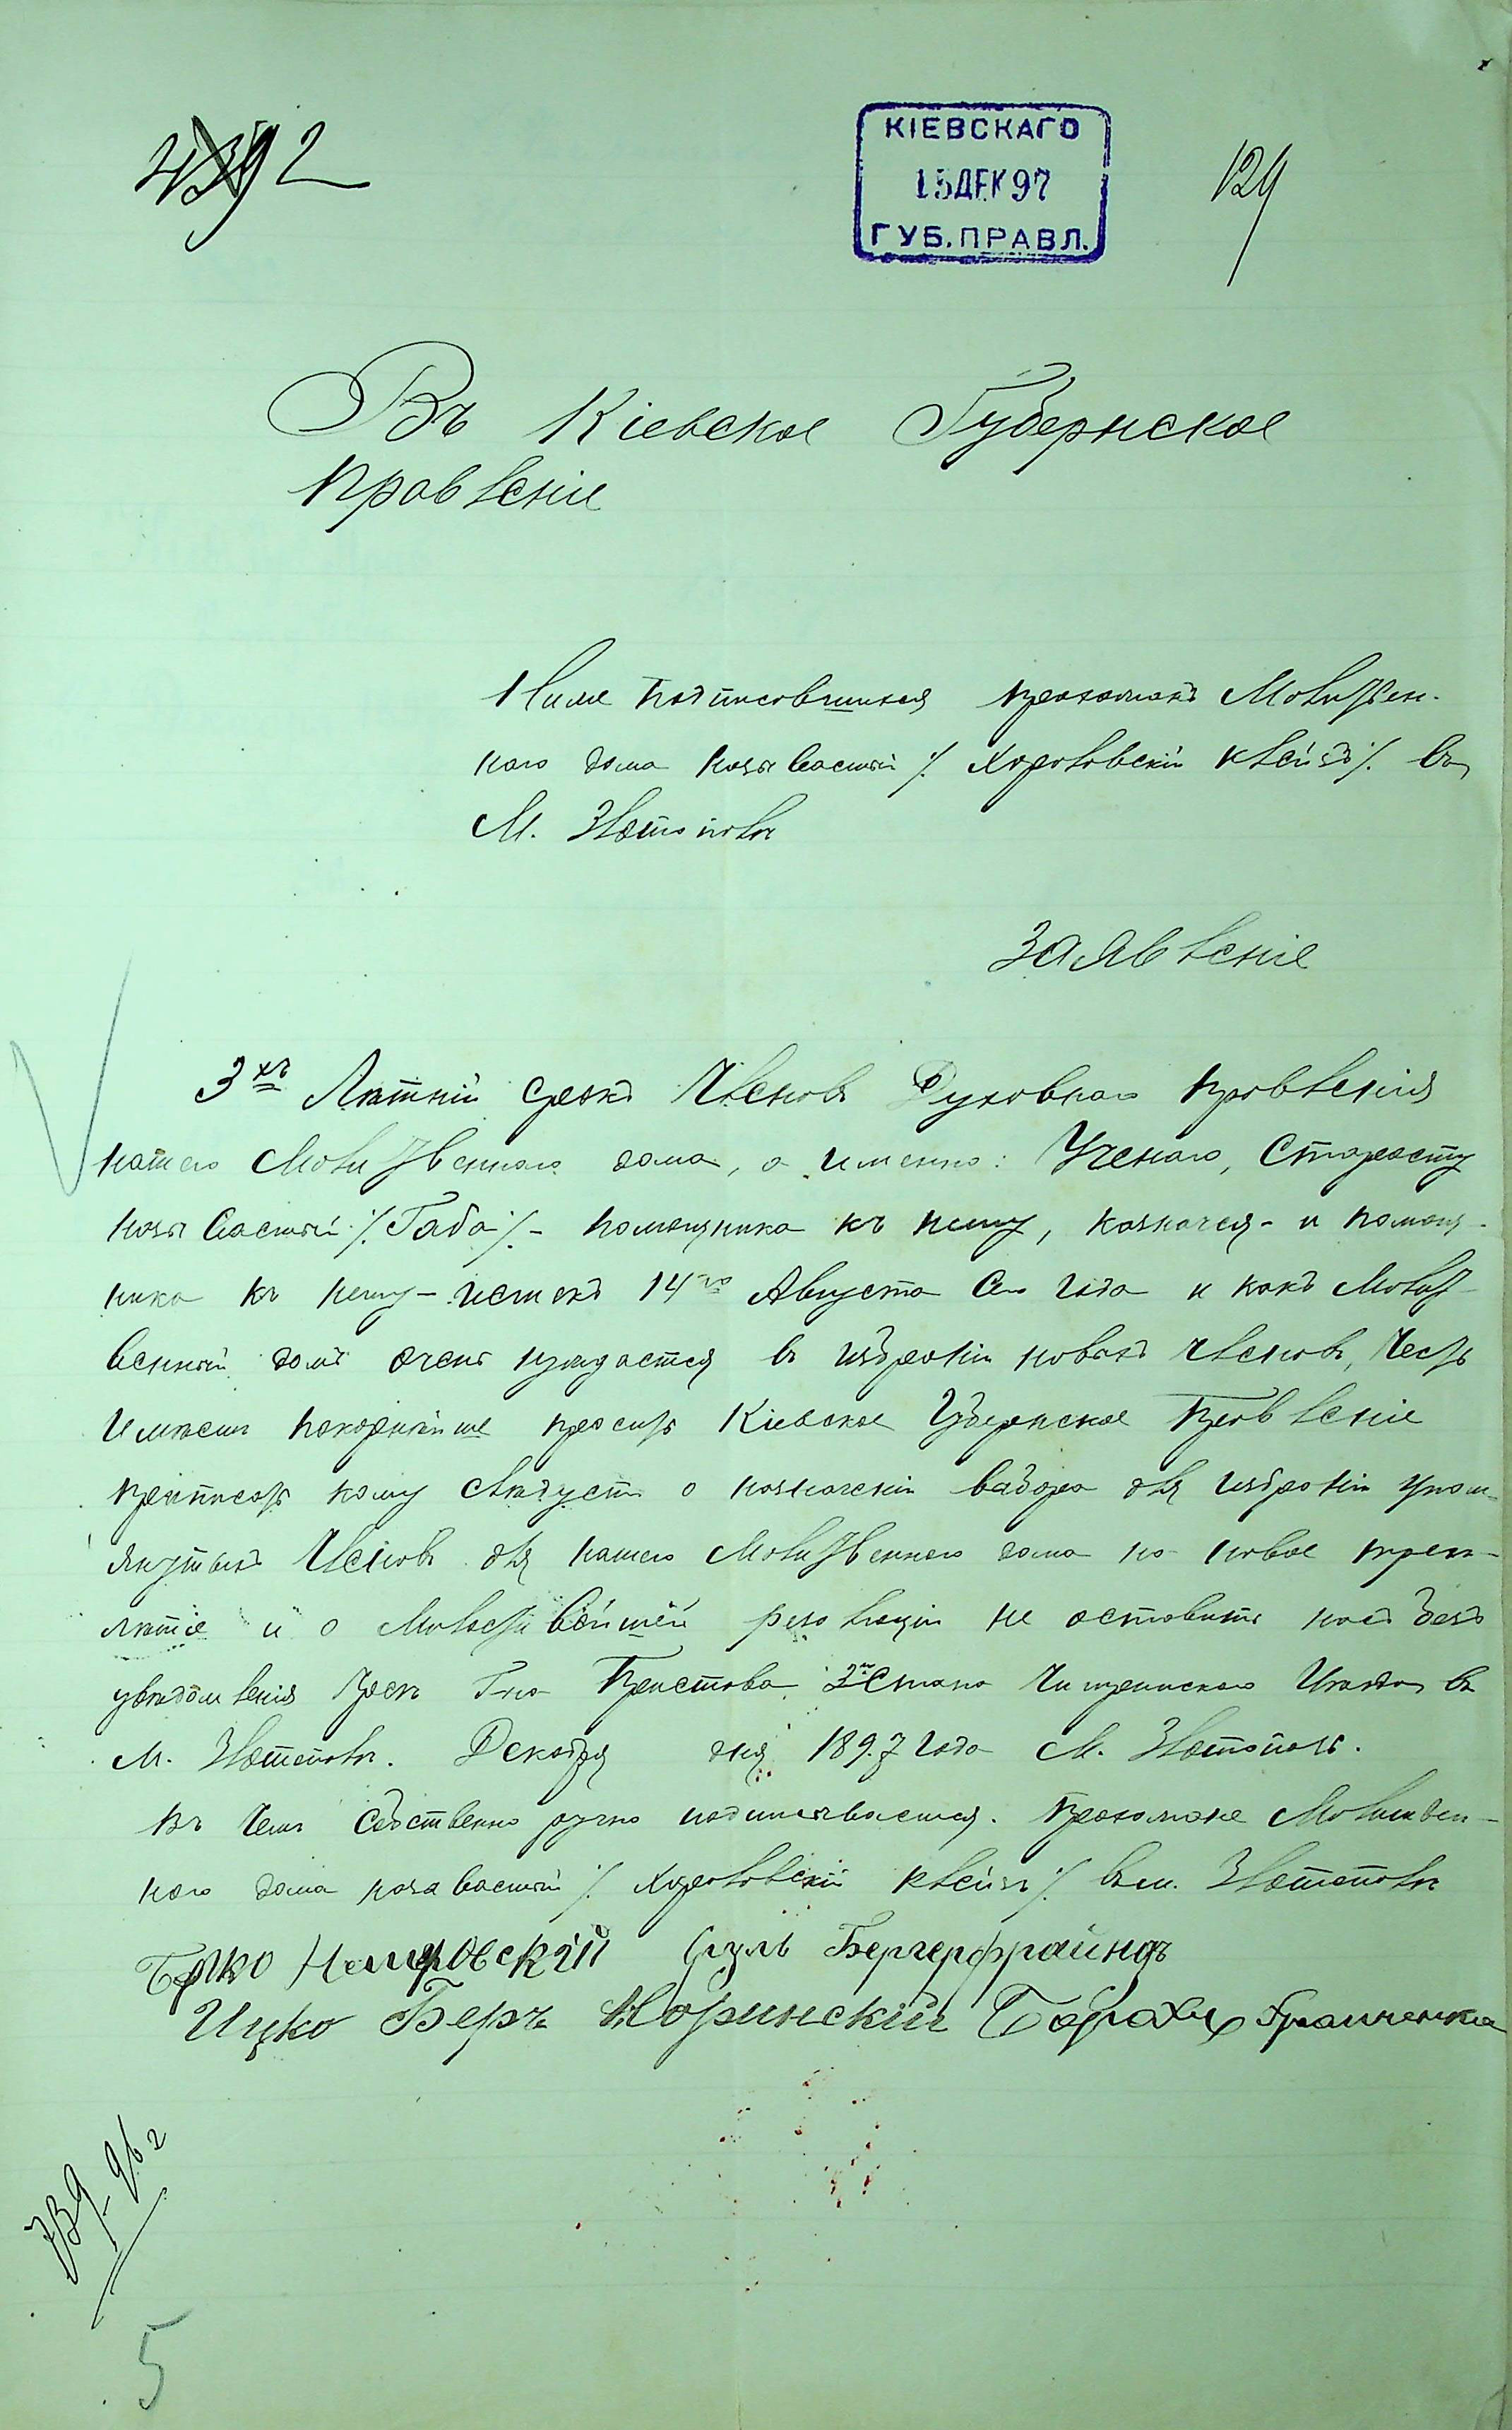 4392
КІЕВСКАГО
15 ДЕК 97
ГУБ. ПРАВЛ.
129
Въ Кіевское Губернское
Правленіе
Ниже подписовшихся прохожанъ Молитвен-
ного дома називаемый ./. Хороловскій клейзъ ./. въ
М. Златополи
Заявленіе
3хъ Лѣтній срокъ Членовъ Духовнаго правленія
нашего Молитвеннаго дома, а именно: Ученаго, Старосту
називаемый ./. Габа ./. - помощника къ нему, казначея - и помощ-
ника къ нему - истекъ 14го Августа сего года и какъ Молит-
венный домъ очень нуждается въ избраніи новыхъ членовъ, Честь
имѣемъ покорнѣйше просить Кіевское Губернское Правленіе
предписать кому слѣдуетъ о назначеніи выбора для избраніи упом-
янутыхъ Членовъ для нашего Молитвеннаго дома на новое трех-
лѣтіе и о милостивѣйшей резолюціи не оставить насъ безъ
увѣдомленія чрезъ Г-на Пристава 2го Стана Чигринскаго Уѣзда въ
м. Златополи. Декабря дня 1897 года М. Златополь.
Въ чемъ собственно ручно подписываемся. Прохожане Молитвен-
ного дома називаемый ./. Хороловскій клейзъ ./. въ м. Златополи
Берко Немировскій Сруль Бергерфрайндъ
Ицко Беръ Жоринскій Борохъ Храпченко
739-96 г
5